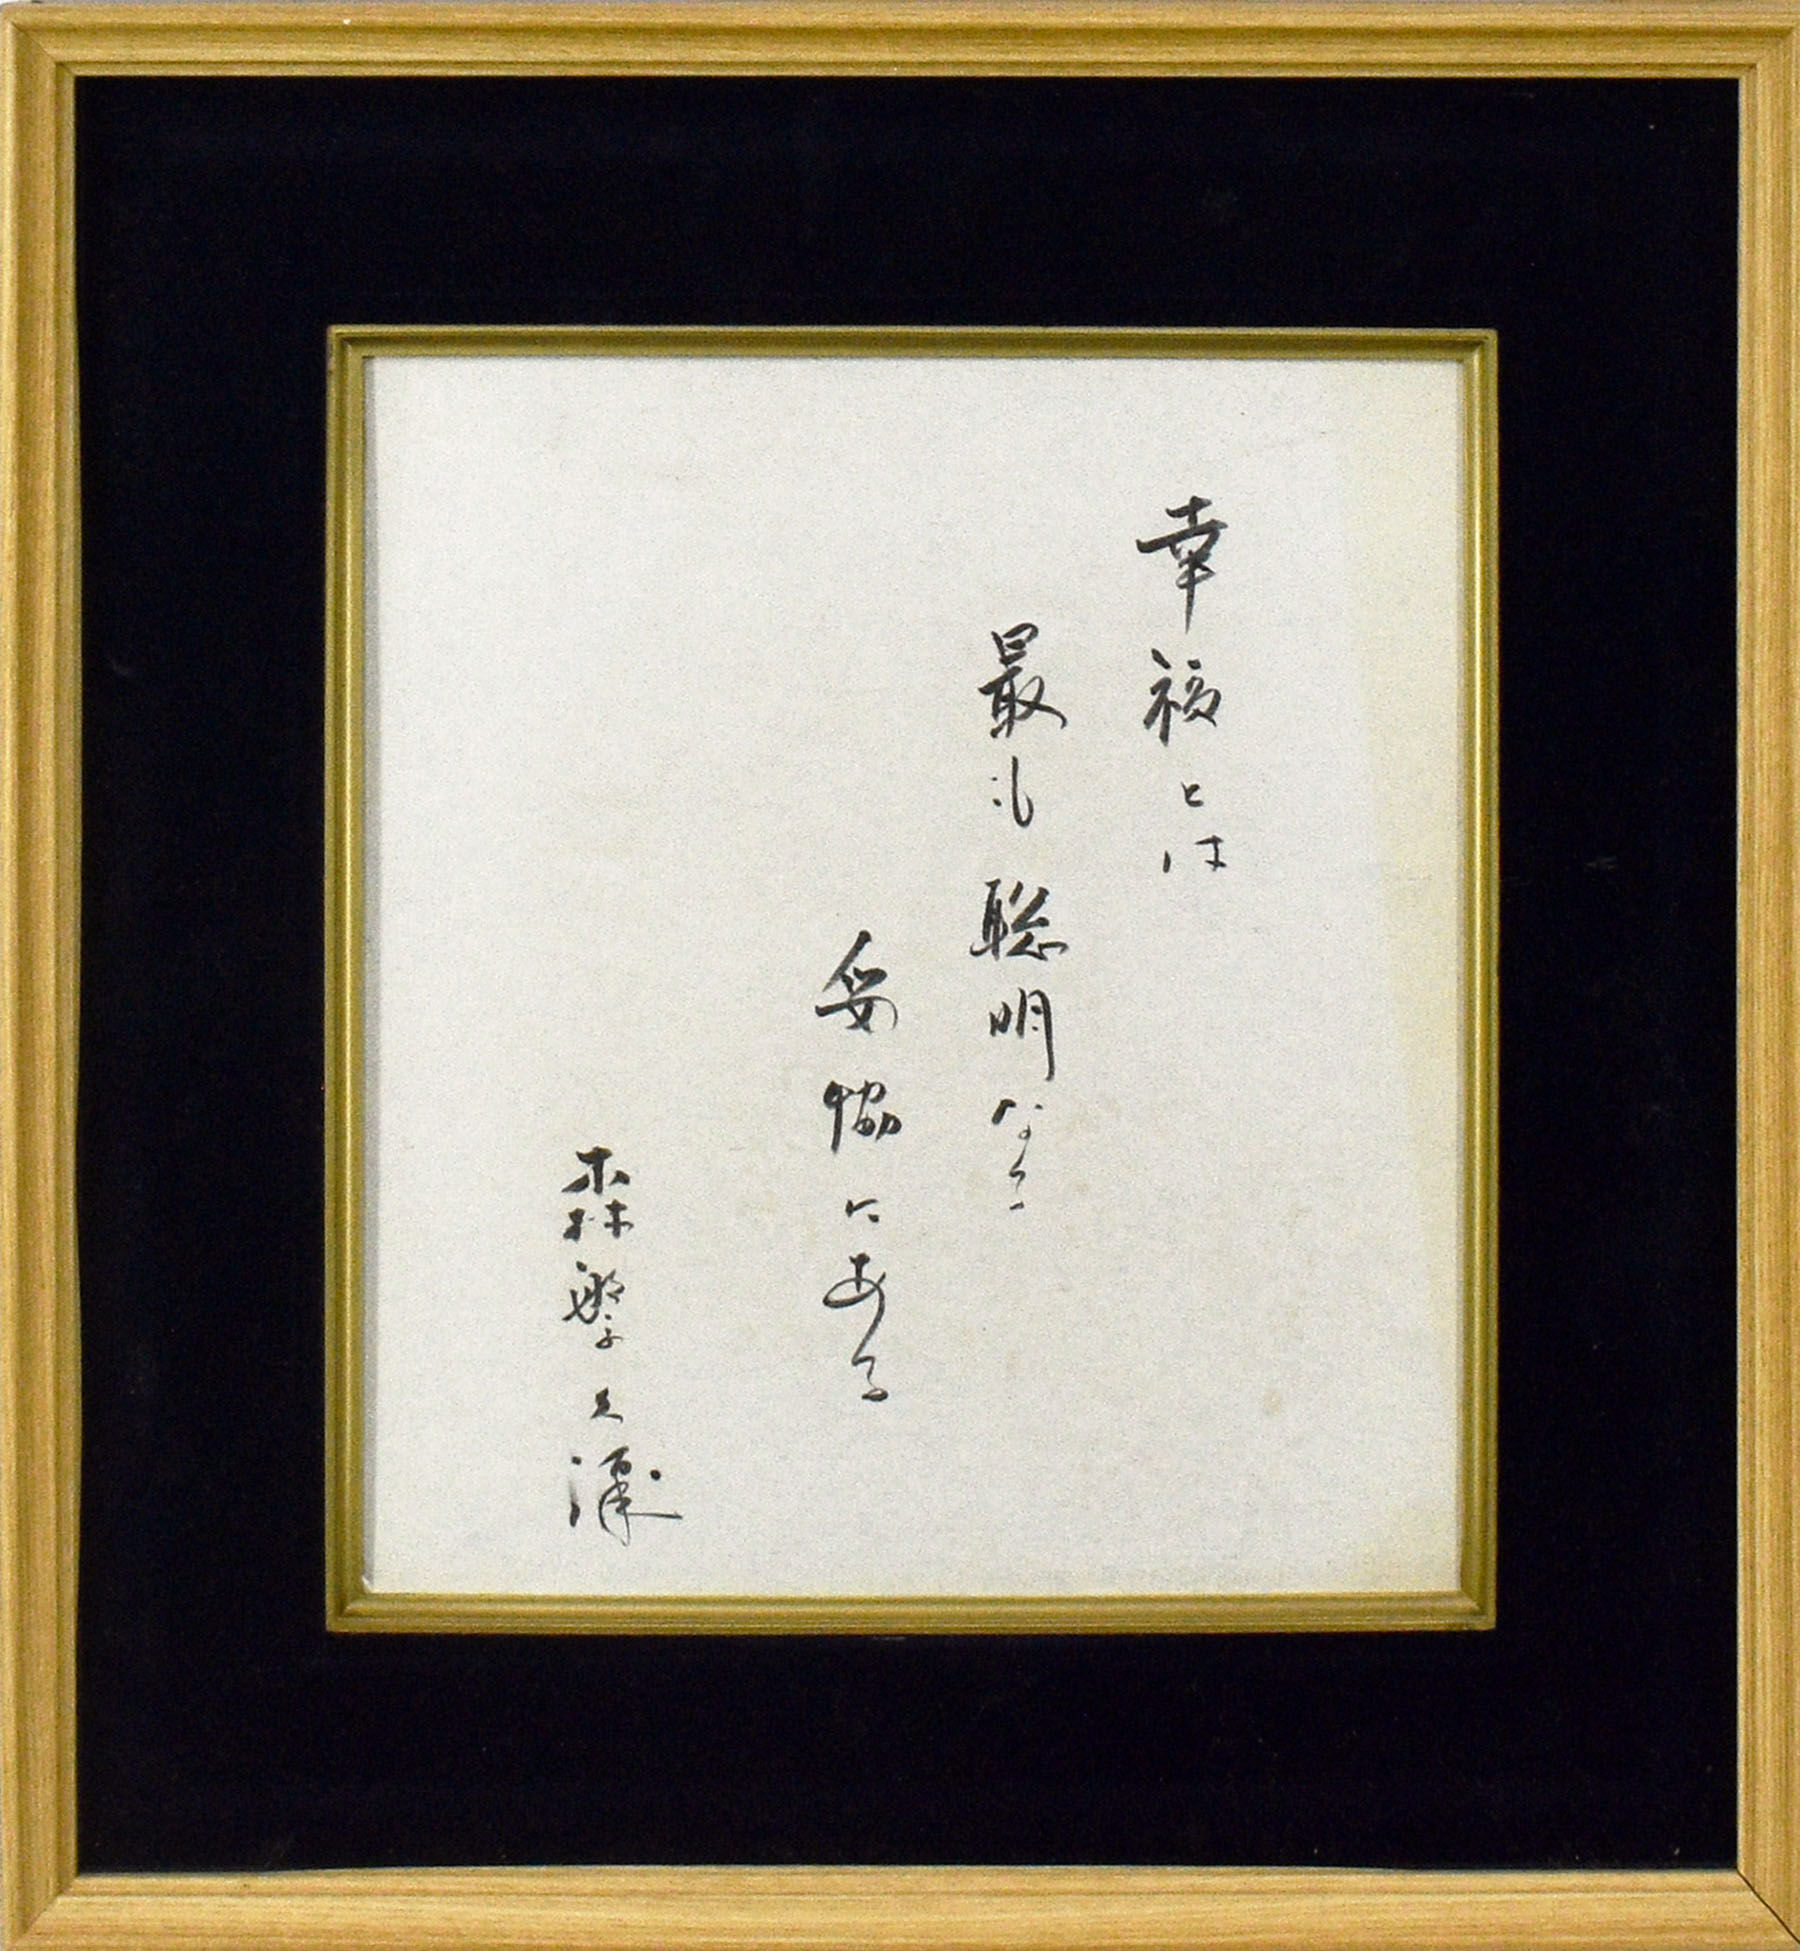 幸福とは
最も聡明なる
妥協にある
森繁久彌